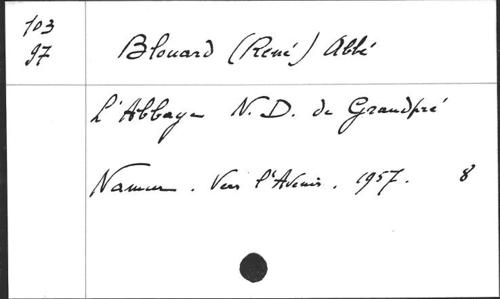 103
97
Blouard (René) Abbé
L'Abbaye N. D. de Grandpré
Namur. Vers l'Avenir. 1957. 8